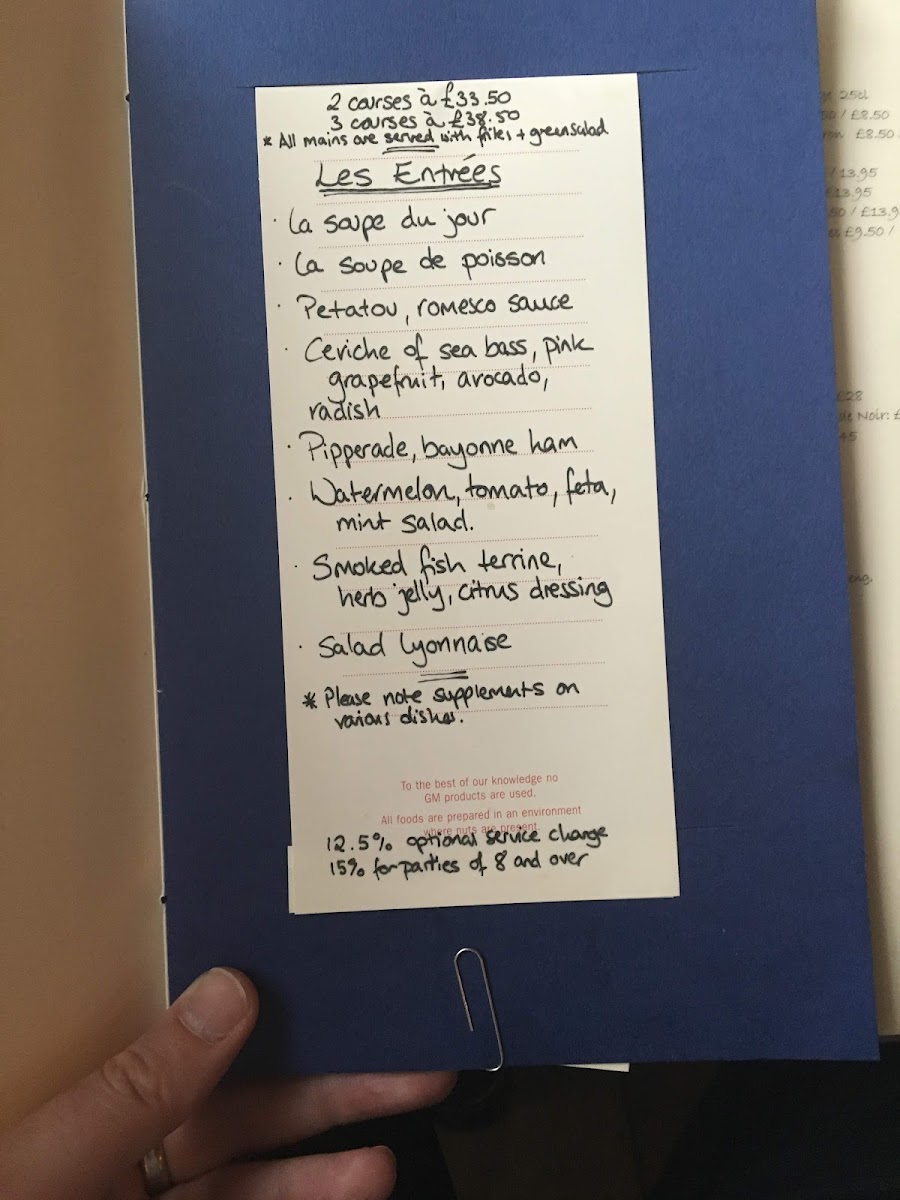 2 courses à £33.50
3 courses à £38.50
* All mains are served with frites + green salad
Les Entrées
· La soupe du jour
· La soupe de poisson
· Petatou, romesco sauce
· Ceviche of sea bass, pink
grapefruit, avocado,
radish
· Pipperade, bayonne ham
· Watermelon, tomato, feta,
mint salad.
· Smoked fish terrine,
herb jelly, citrus dressing
· Salad lyonnaise
* Please note supplements on
various dishes.
To the best of our knowledge no
GM products are used.
All foods are prepared in an environment
where nuts are present.
12.5% optional service charge
15% for parties of 8 and over
25cl
/ £8.50
£8.50
/ 13.95
£13.95
/ £13.9
£9.50 /
£28
de Noir: £
45